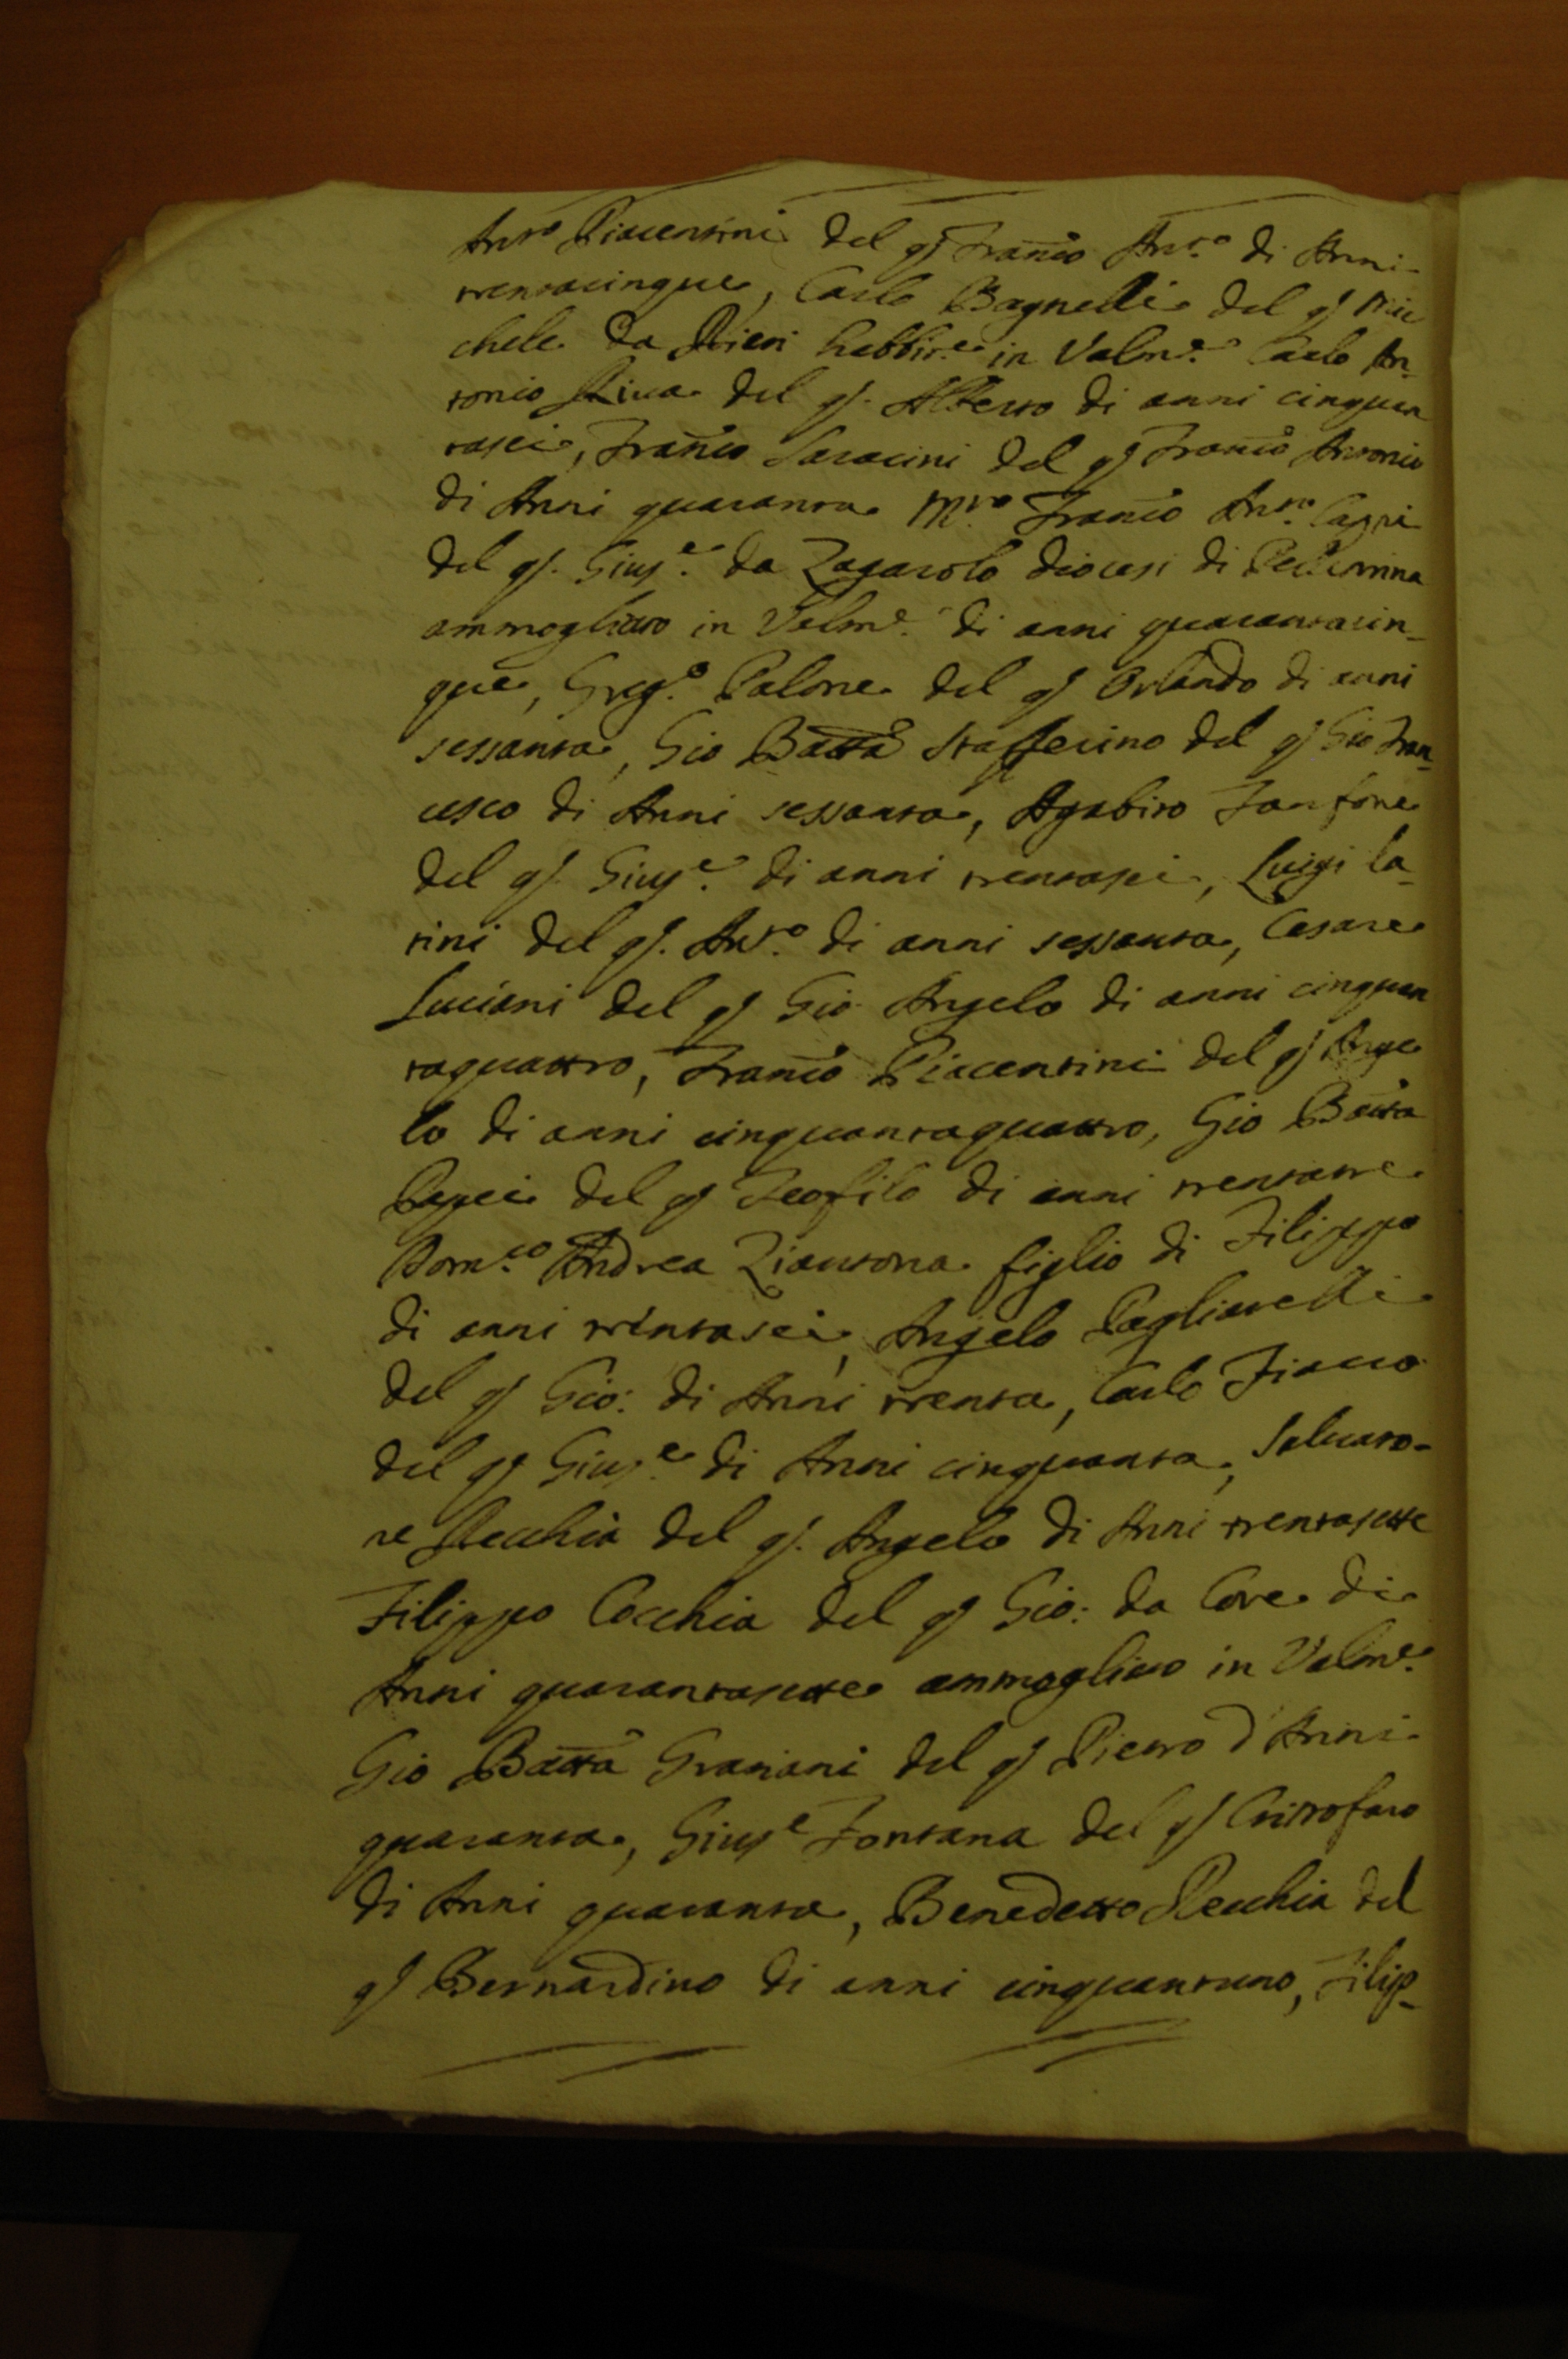 Ant.o Piacentini del q. Fran.co Ant.o di Anni
trentacinque, Carlo Bagnelli del q. Mic
chele da Rieti habbit.e in Valm.e Carlo An-
tonio Riva del q. Alberto di anni cinquan
tasei, Fran.co Saracini del q. Fran.co Antonio
di Anni quaranta M.ro Fran.co Ant.o
del q. Gius.e da Zagarolo diocesi di
ammogliato in Valm.e di anni quarantacin-
que, Greg.o Palone del q. Orlando di anni
sessanta, Gio Batta Stafferino del q. Gio Fran-
cesco di Anni sessanta, Agabito Fanfone
del q. Gius.e di anni trentasei, Luigi La-
tini del q. Ant.o di anni sessanta, Cesare
Luciani del q. Gio Angelo di anni cinquan
taquattro, Fran.co Piacentini del q. Ange
lo di anni cinquantaquattro, Gio Batta
del q. Teofilo di anni trentatre
Dom.co Andrea Ziantona figlio di Filippo
di anni trentasei, Angelo Pagliarelli
del q. Gio: di Anni trenta, Carlo
del q. Gius.e di Anni cinquanta, Salvato-
re Recchia del q. Angelo di Anni trentasette
Filippo Cocchia del q. Gio: da Core di
Anni quarantasette ammogliato in Valm.e
Gio Batta Graziani del q. Pietro d'Anni
quaranta, Gius.e Fontana del q. Cristofaro
di Anni quaranta, Benedetto Recchia del
q. Bernardino di anni cinquantuno, Filip-